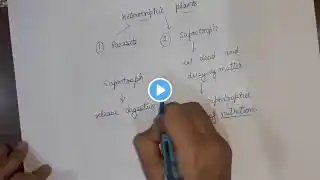 heterotrophic plants
1 Parasite
2 Saprotroph
eat dead and
decaying matter
Saprotroph
release digestive
of nutrition